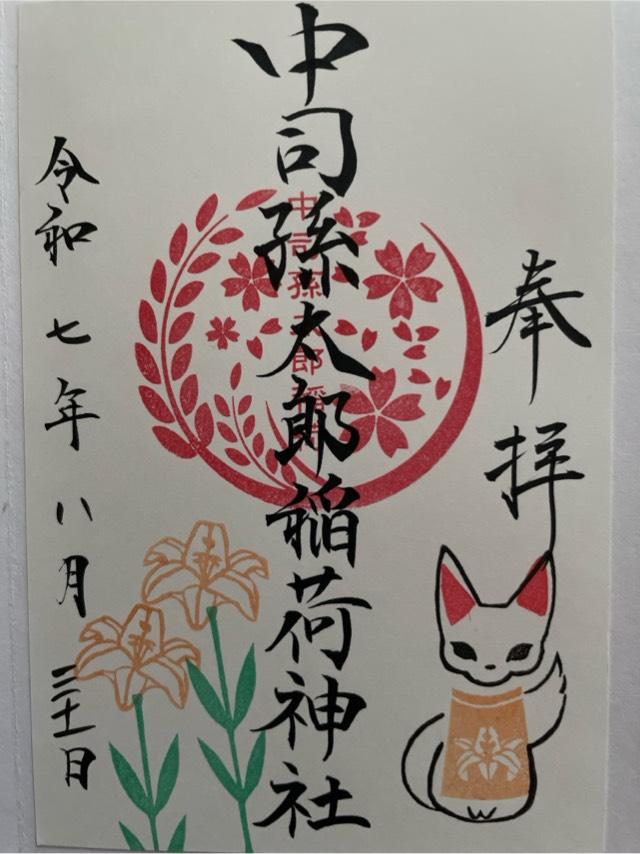 奉拝
中司孫太郎稲荷神社
中司孫太郎稲荷
令和七年八月三十一日